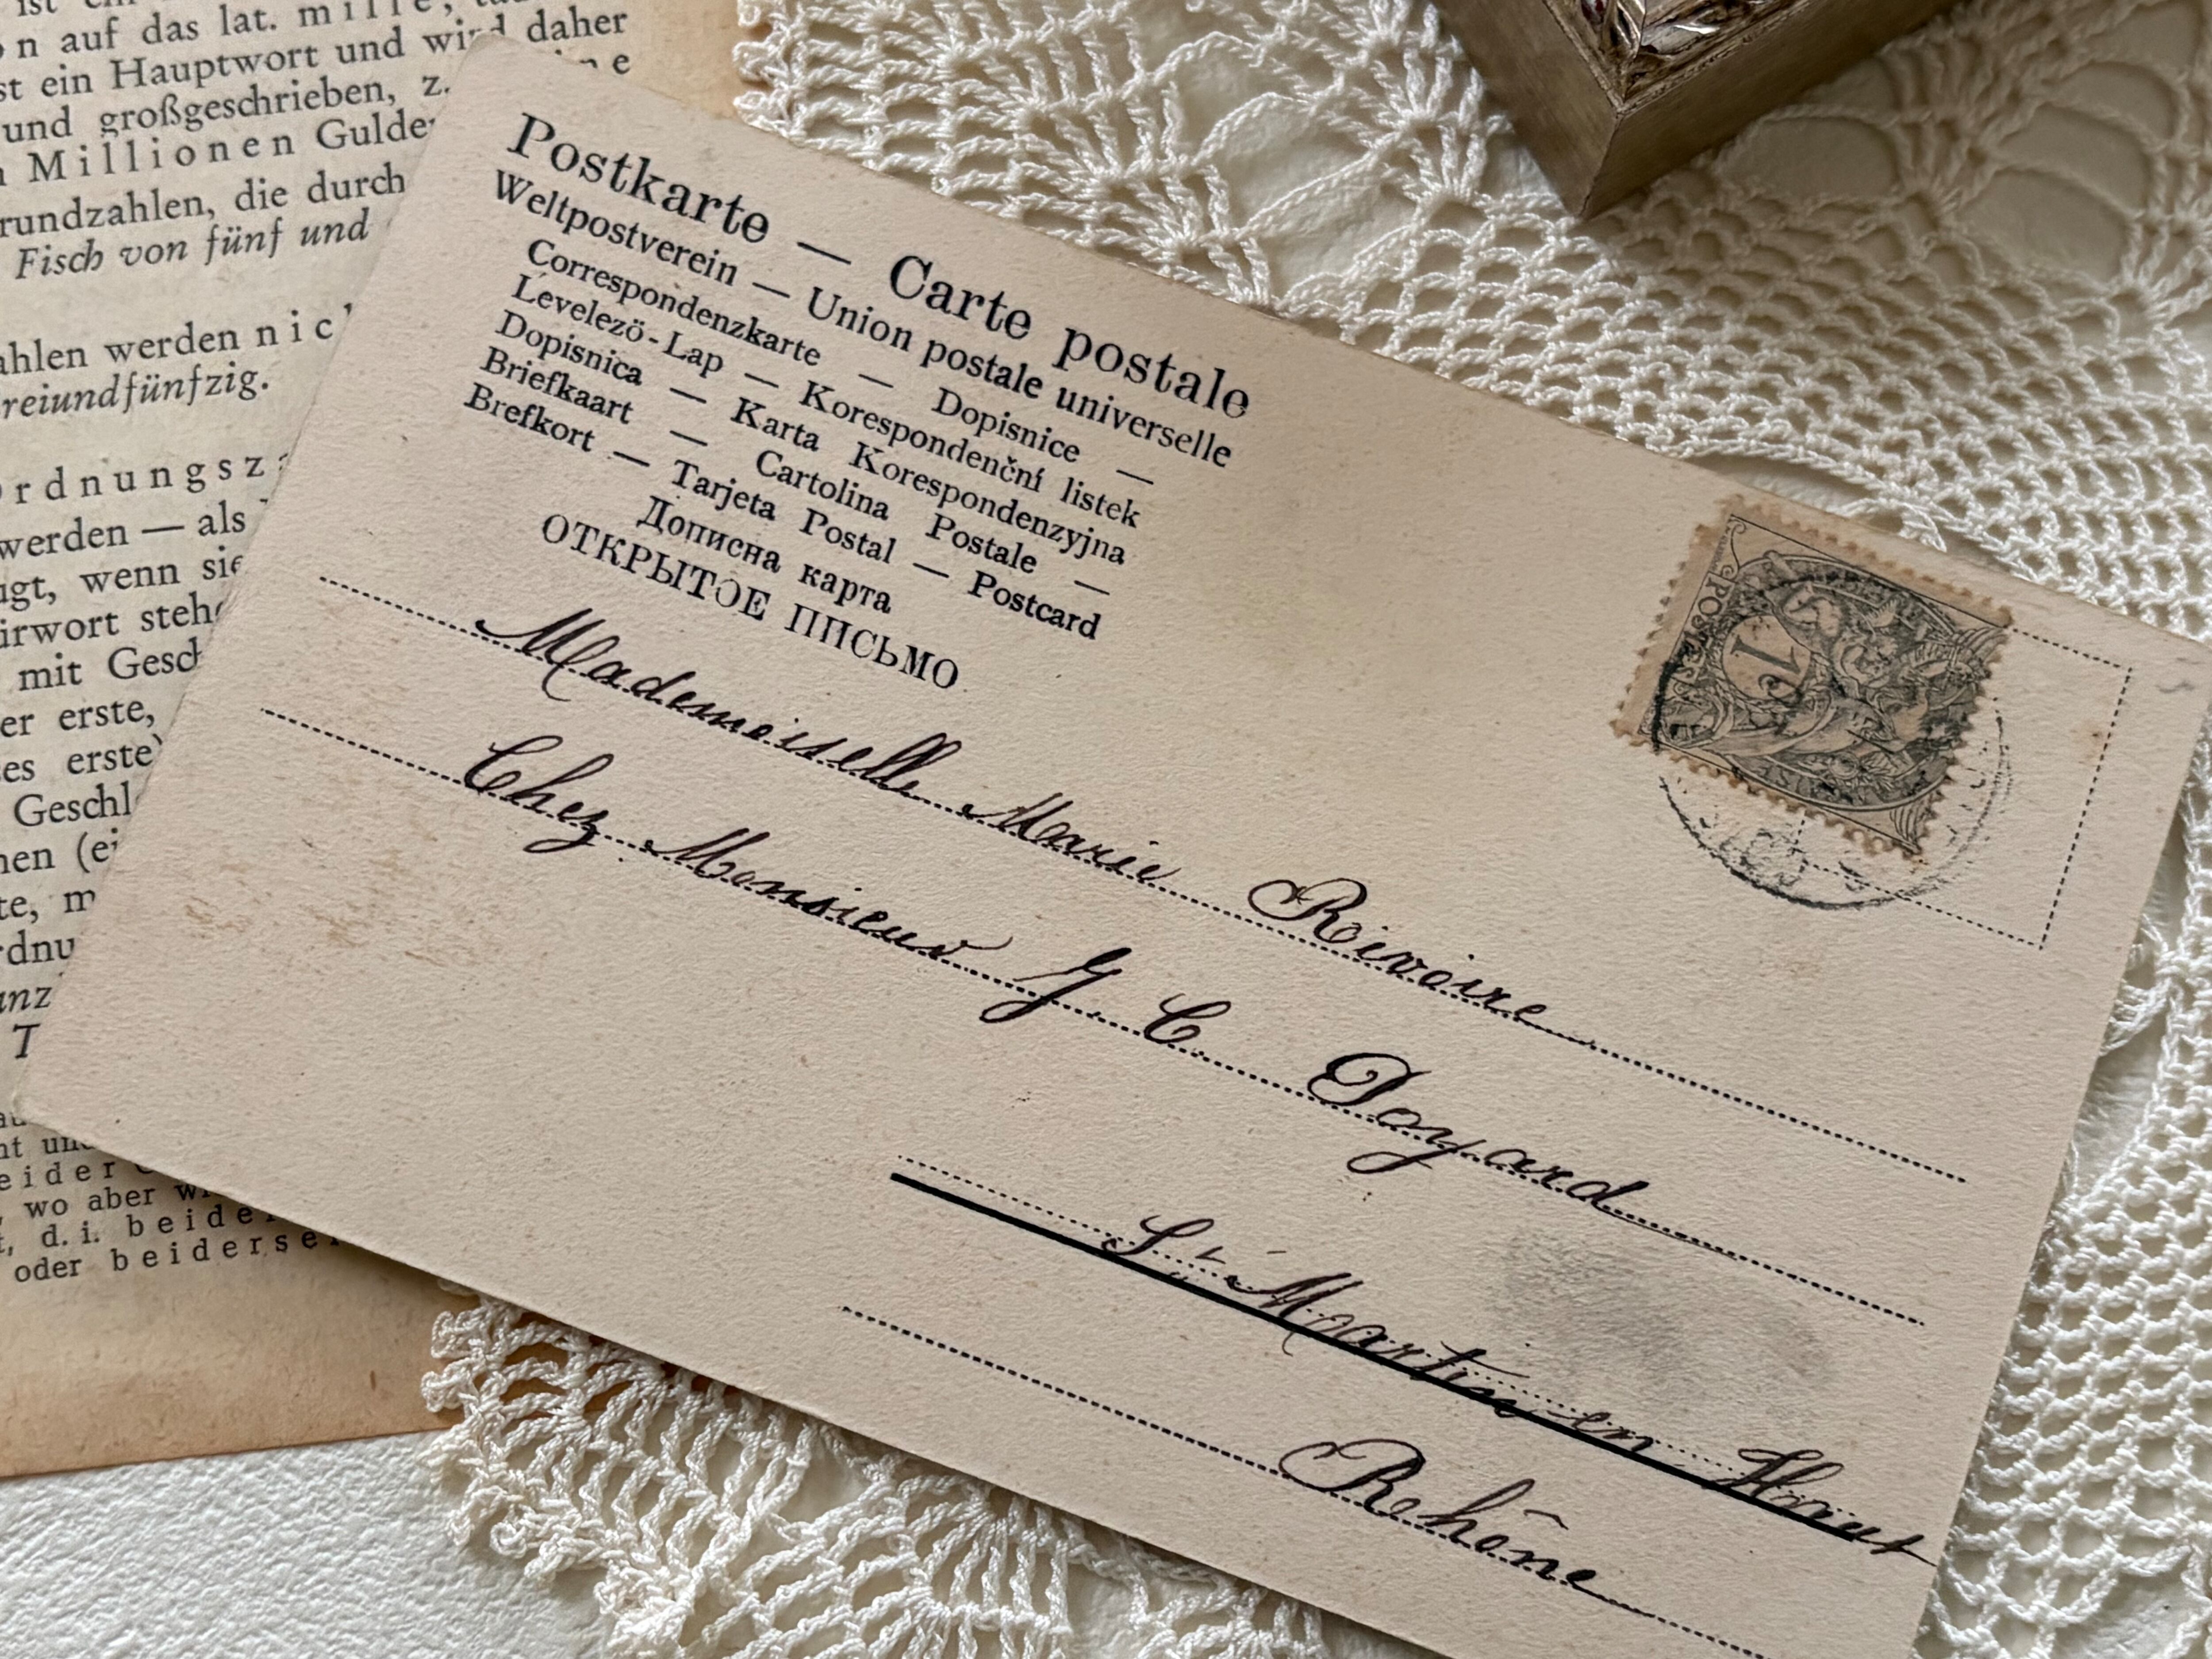 auf das lat. mille,
ist ein Hauptwort und wird daher
und großgeschrieben, z.
Millionen
rundzahlen, die durch
Fisch von fünf und
werden
reiundfünfzig.
werden — als
wenn
mit
erste,
erste)
wo aber
d. i.
oder
Postkarte — Carte postale
Weltpostverein — Union postale universelle
Correspondenzkarte — Dopisnice —
Levelezö-Lap — Korespondenční listek
Dopisnica — Karta Korespondenzyjna
Briefkaart — Cartolina Postale —
Brefkort — Tarjeta Postal — Postcard
Дописна карта
ОТКРЫТОЕ ПИСЬМО
1c
Mademoiselle Marie Rivoire
Chez Monsieur J. C. Doyard
St Martin en Haut
Rhône